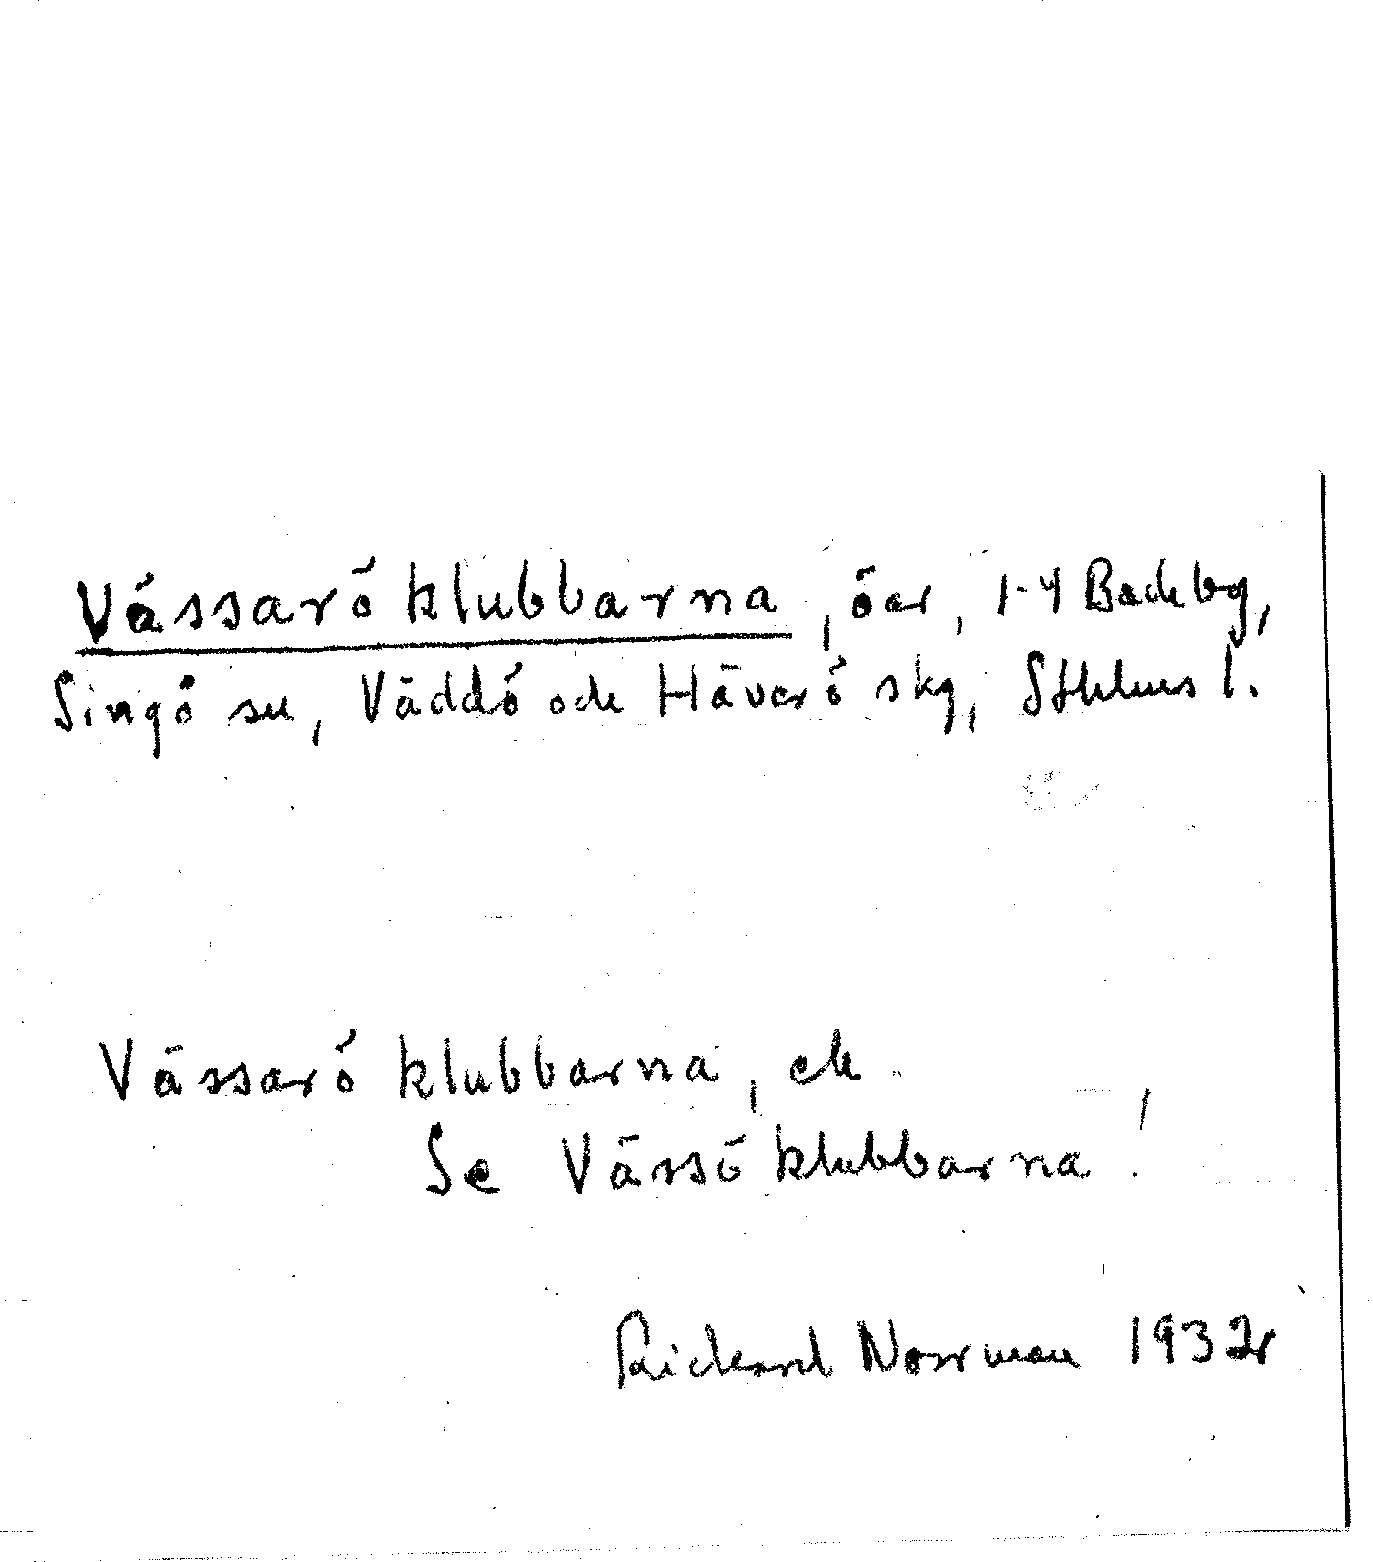 Vässaröklubbarna, öar, 1-4 Backbyg,
Singö sn, Väddö och Häverö skg, Sthlms l.
Vässaröklubbarna, ek
Se Vässöklubbarna!
Rickard Norrman 1932